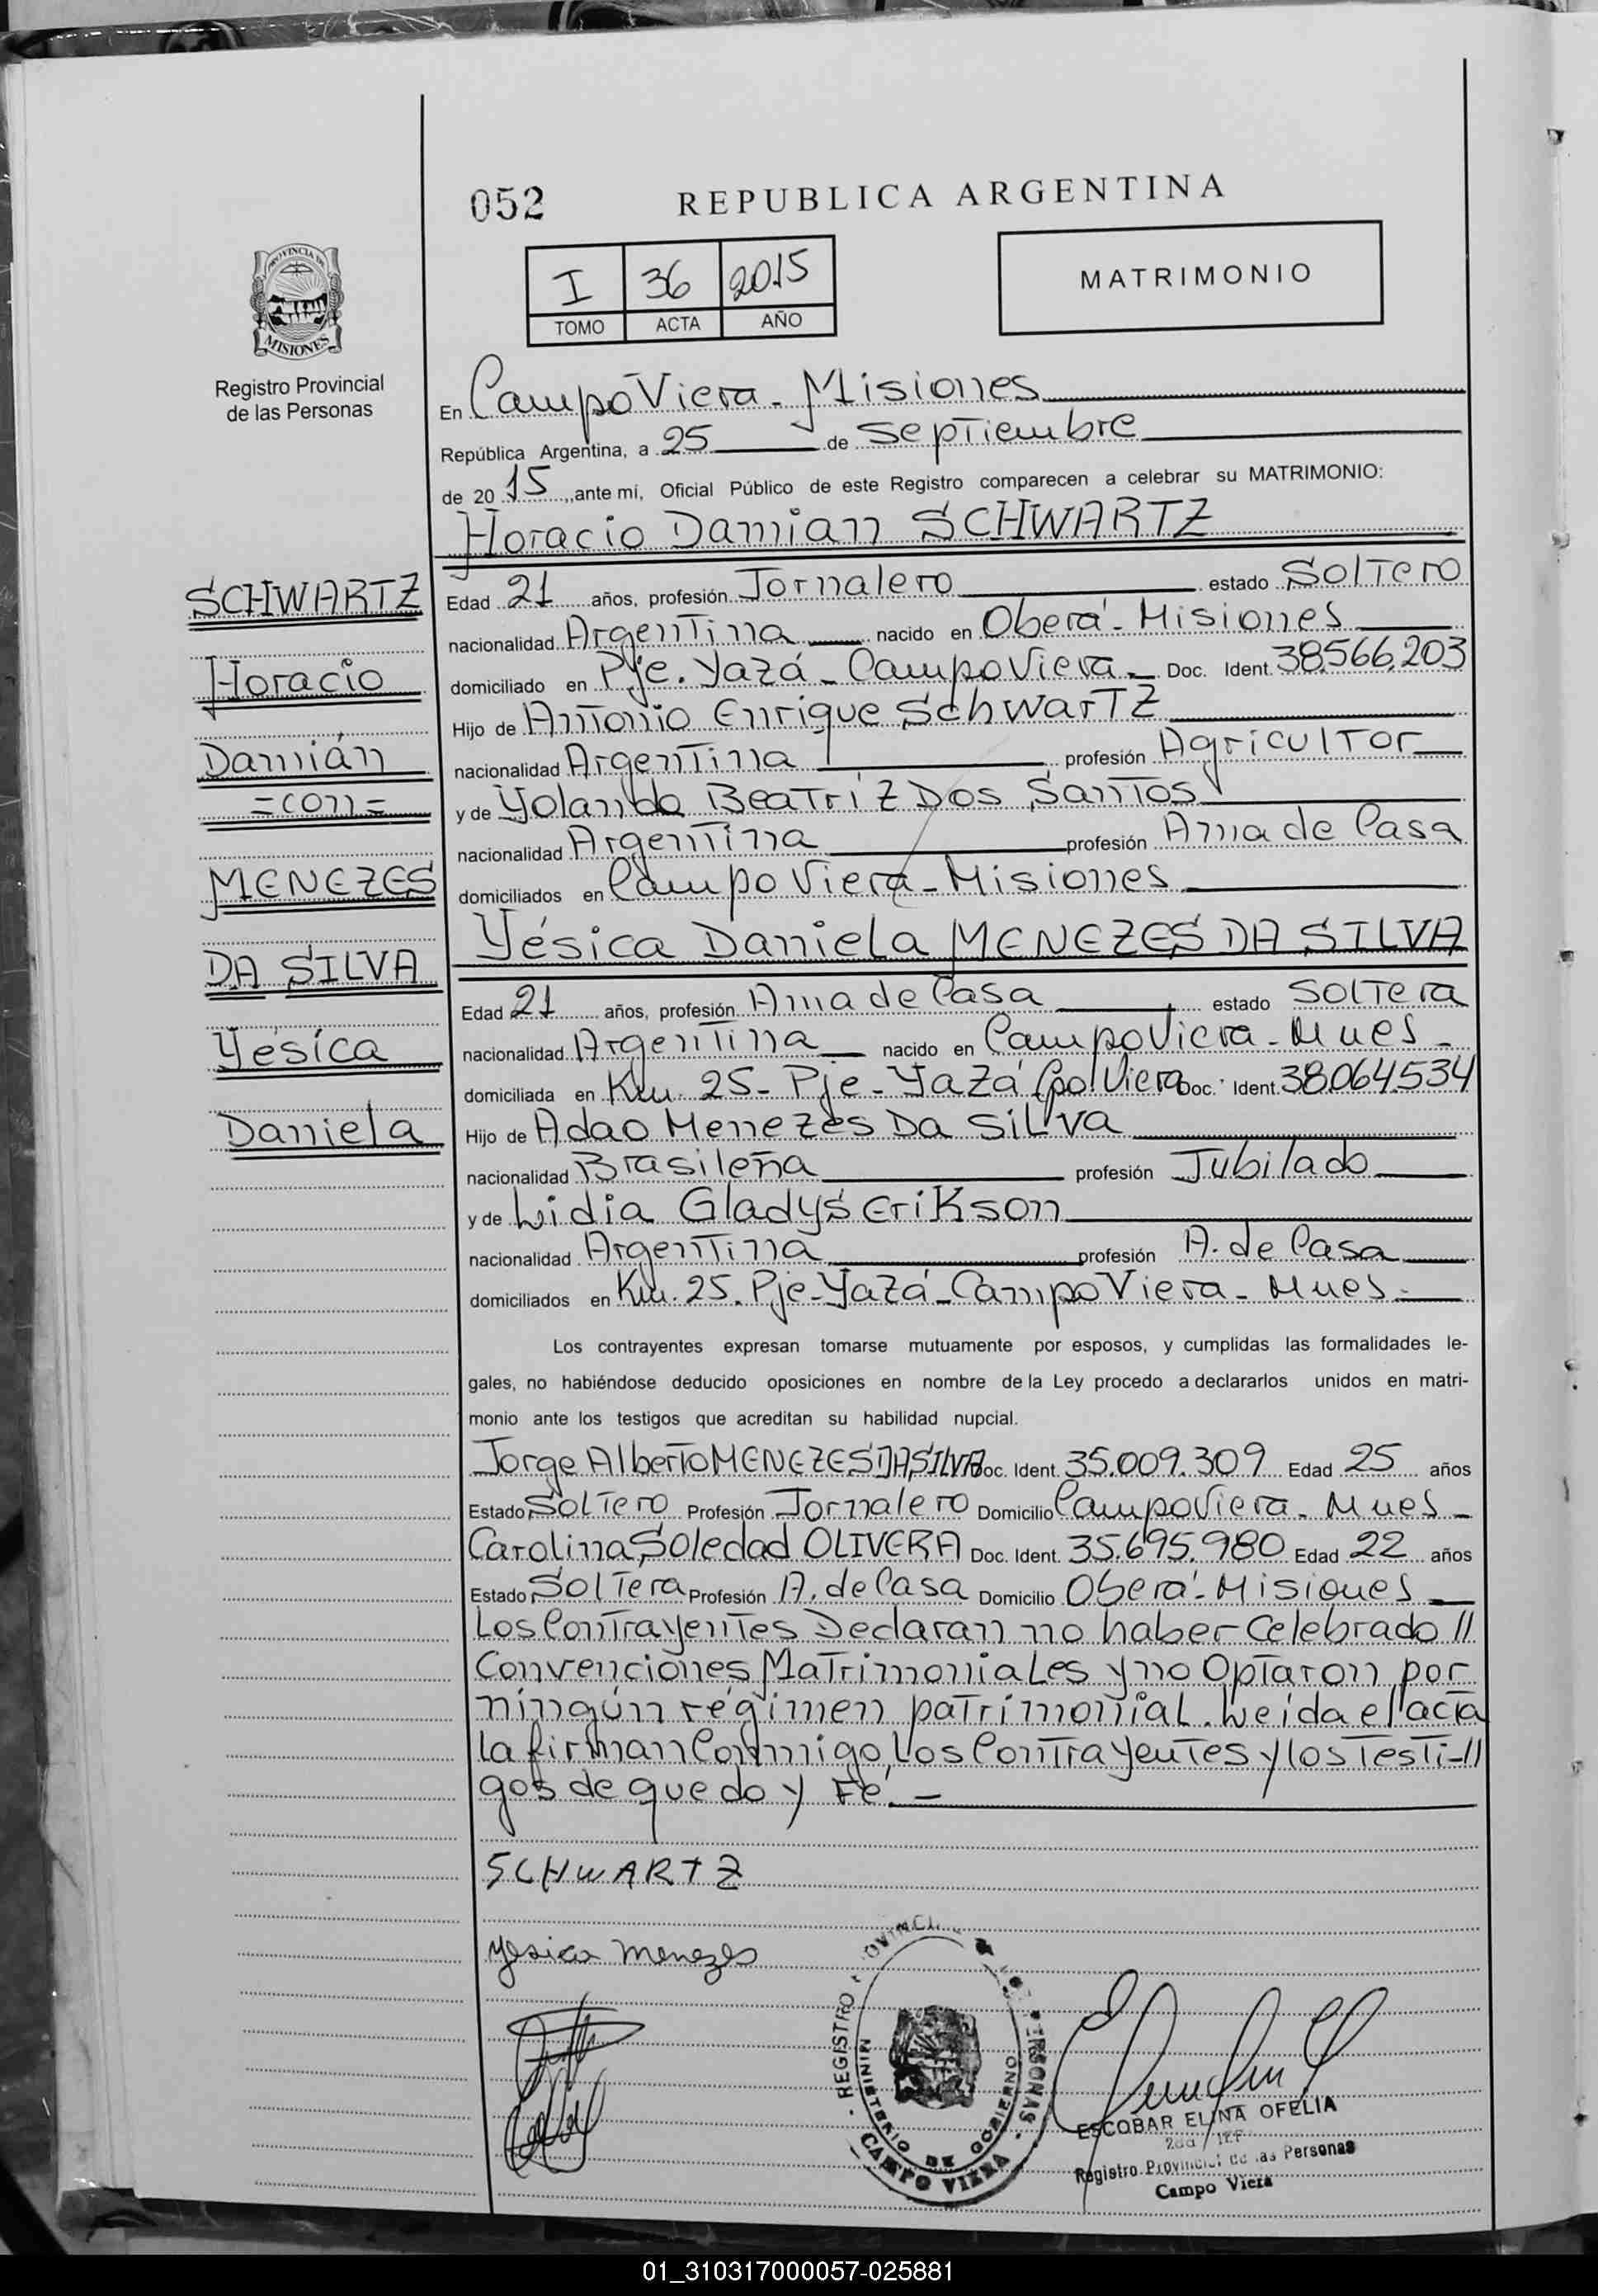 052
REPUBLICA ARGENTINA
PROVINCIA DE
MISIONES
Registro Provincial
de las Personas
I 36 2015
TOMO ACTA AÑO
MATRIMONIO
En Campo Viera - Misiones
República Argentina, a 25 de septiembre
de 20 15, ante mí, Oficial Público de este Registro comparecen a celebrar su MATRIMONIO:
Horacio Damian SCHWARTZ
SCHWARTZ
Horacio
Damián
=con=
MENEZES
DA SILVA
Yésica
Daniela
Edad 21 años, profesión Jornalero estado Soltero
nacionalidad Argentina nacido en Oberá - Misiones
domiciliado en Pje. Yazá - Campo Viera - Doc. Ident. 38.566.203
Hijo de Antonio Enrique Schwartz
nacionalidad Argentina profesión Agricultor
y de Yolanda Beatriz Dos Santos
nacionalidad Argentina profesión Ama de Casa
domiciliados en Campo Viera - Misiones
Yésica Daniela MENEZES DA SILVA
Edad 21 años, profesión Ama de Casa estado Soltera
nacionalidad Argentina nacido en Campo Viera - Mnes -
domiciliada en Km. 25 - Pje - Yazá Cpo. Viera Doc. Ident. 38.064.534
Hijo de Adao Menezes Da Silva
nacionalidad Brasileña profesión Jubilado
y de Lidia Gladys Erikson
nacionalidad Argentina profesión A. de Casa
domiciliados en Km. 25. Pje - Yazá - Campo Viera - Mnes.
Los contrayentes expresan tomarse mutuamente por esposos, y cumplidas las formalidades le-
gales, no habiéndose deducido oposiciones en nombre de la Ley procedo a declararlos unidos en matri-
monio ante los testigos que acreditan su habilidad nupcial.
Jorge Alberto MENEZES DA SILVA Doc. Ident. 35.009.309 Edad 25 años
Estado Soltero Profesión Jornalero Domicilio Campo Viera - Mnes -
Carolina Soledad OLIVERA Doc. Ident. 35.695.980 Edad 22 años
Estado Soltera Profesión A. de Casa Domicilio Oberá - Misiones
Los Contrayentes Declaran no haber Celebrado //
Convenciones Matrimoniales y no Optaron por
ningún régimen patrimonial. Leída el acta
la firman Conmigo, Los Contrayentes y los Testi-//
gos de que do y Fé. -
SCHWARTZ
Yesica Menezes
REGISTRO PROVINCIAL PERSONAS
MINISTERIO DE GOBIERNO
CAMPO VIERA
ESCOBAR ELINA OFELIA
Registro Provincial de las Personas
Campo Viera
01_310317000057-025881